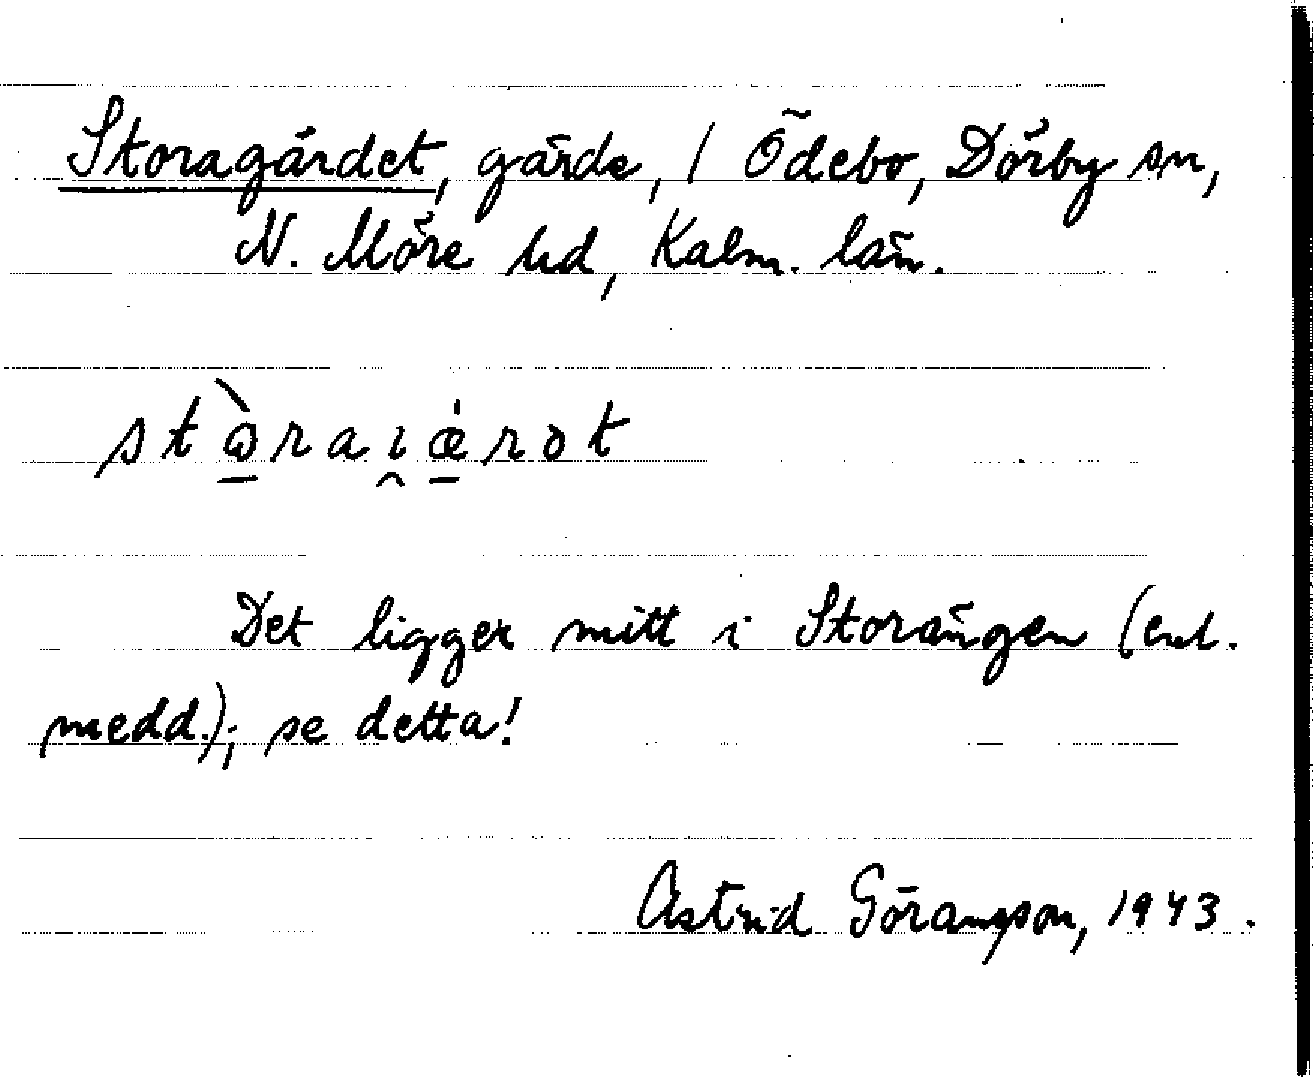 Storagärdet, gärde, 1 Ödebo, Dörby sn,
N. Möre hd, Kalm. län.
Det ligger mitt i Storängen (enl.
medd.); se detta!
Astrid Göransson, 1943.